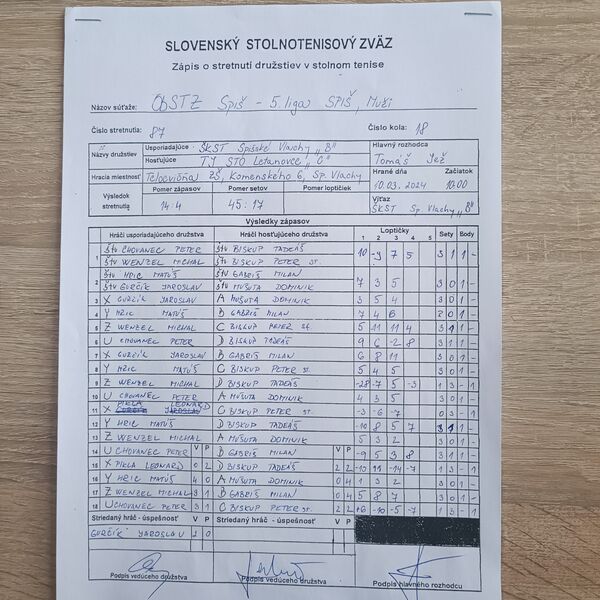 SLOVENSKÝ STOLNOTENISOVÝ ZVÄZ
Zápis o stretnutí družstiev v stolnom tenise
Názov súťaže: ObSTZ Spiš - 5. liga SPIŠ, Muži
Číslo stretnutia: 87 Číslo kola: 18
Názvy družstiev Usporiadajúce ŠKST Spišské Vlachy "B" Hlavný rozhodca
Hosťujúce TJ STO Letanovce "C" Tomáš Jež
Hracia miestnosť Telocvičňa ZŠ, Komenského 6, Sp. Vlachy Hrané dňa Začiatok
Pomer zápasov Pomer setov Pomer loptičiek 10.03.2024 10:00
Výsledok stretnutia 14:4 45:17 Víťaz
ŠKST Sp. Vlachy "B"
Výsledky zápasov
Hráči usporiadajúceho družstva Hráči hosťujúceho družstva Loptičky Sety Body
1 2 3 4 5
1 štv CHOVANEC PETER štv BISKUP TADEÁŠ 10 -9 7 5 3 1 1 -
štv WENZEL MICHAL štv BISKUP PETER st.
2 štv HRIC MATÚŠ štv GABRIŠ MILAN 7 3 5 3 0 1 -
štv GURČÍK JAROSLAV štv MUŠUTA DOMINIK
3 X GURČÍK JAROSLAV A MUŠUTA DOMINIK 3 5 4 3 0 1 -
4 Y HRIC MATÚŠ B GABRIŠ MILAN 7 4 6 0 1 -
5 Z WENZEL MICHAL C BISKUP PETER st. 5 11 4 3 1 -
6 U CHOVANEC PETER D BISKUP TADEÁŠ 9 6 -2 8 3 1 1 -
7 X GURČÍK JAROSLAV B GABRIŠ MILAN 6 8 11 3 0 1 -
8 Y HRIC MATÚŠ C BISKUP PETER st. 5 4 5 3 0 1 -
9 Z WENZEL MICHAL D BISKUP TADEÁŠ -7 5 -3 1 3 - 1
10 U CHOVANEC PETER A MUŠUTA DOMINIK 4 3 5 3 0 1 -
11 X PIKLA LEONARD C BISKUP PETER st. -3 -6 -7 0 3 - 1
12 Y HRIC MATÚŠ D BISKUP TADEÁŠ -10 8 5 7 3 1 1 -
13 Z WENZEL MICHAL A MUŠUTA DOMINIK 5 3 2 3 0 1 -
14 U CHOVANEC PETER V P B GABRIŠ MILAN V P -9 5 3 8 3 1 1 -
15 X PIKLA LEONARD 0 2 D BISKUP TADEÁŠ 2 2 -10 11 -14 -7 1 3 - 1
16 Y HRIC MATÚŠ 4 0 A MUŠUTA DOMINIK 0 4 1 3 2 3 0 1 -
17 Z WENZEL MICHAL 3 1 B GABRIŠ MILAN 0 4 5 8 7 3 0 1 -
18 U CHOVANEC PETER 3 1 C BISKUP PETER st. 2 2 -10 -5 -7 1 3 - 1
Striedaný hráč - úspešnosť V P Striedaný hráč - úspešnosť V P
GURČÍK JAROSLAV 2 0
Podpis vedúceho družstva Podpis vedúceho družstva Podpis hlavného rozhodcu